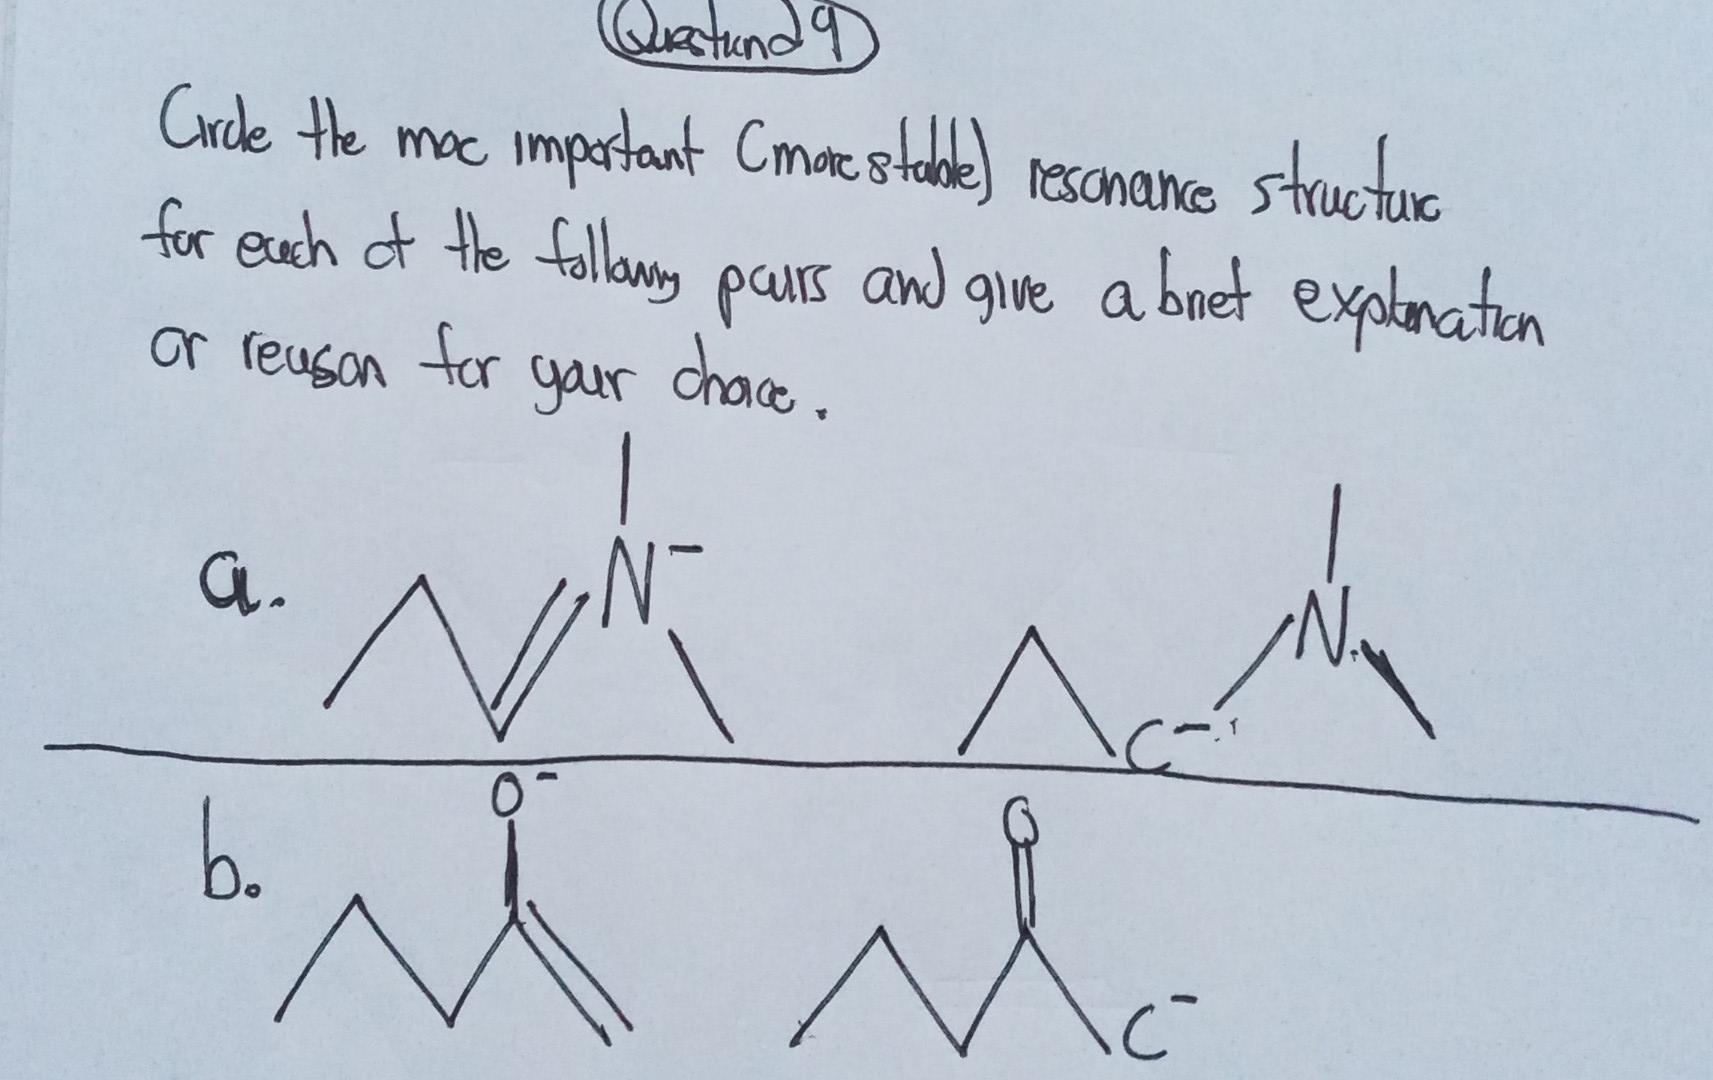 Question 9
Circle the mor important (more stable) resonance structure
for each of the following pairs and give a brief explanation
or reason for your choice.
a.
N-
C-
N
b.
O-
O
C-